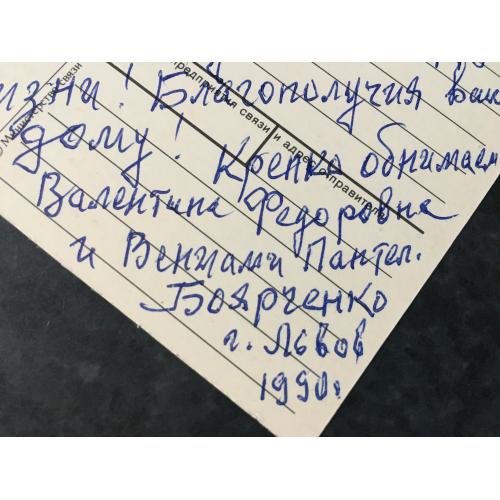 изни! Благополучия ваш
дому! Крепко обнимаем
Валентина Федоровна
и Вениами Пантел.
Боярченко
г. Львов
1990г.
© Министерство связи
предприятия связи и адрес отправителя